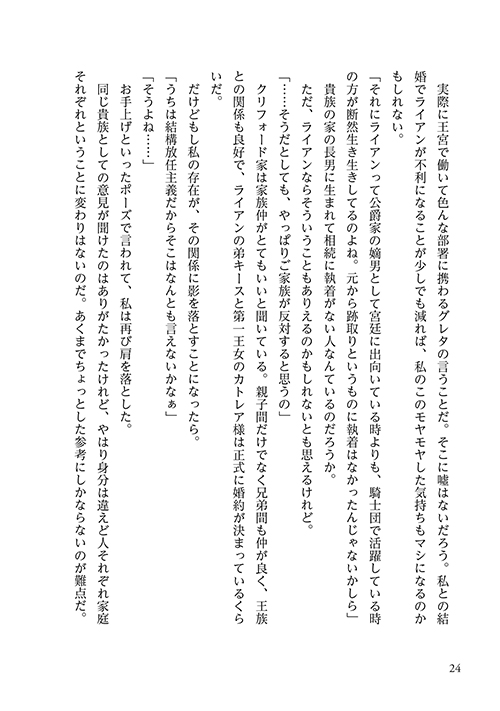 実際に王宮で働いて色んな部署に携わるグレタの言うことだ。そこに嘘はないだろう。私との結
婚でライアンが不利になることが少しでも減れば、私のこのモヤモヤした気持ちもマシになるのか
もしれない。
「それにライアンって公爵家の嫡男として宮廷に出向いている時よりも、騎士団で活躍している時
の方が断然生き生きしてるのよね。元から跡取りというものに執着はなかったんじゃないかしら」
　貴族の家の長男に生まれて相続に執着がない人なんているのだろうか。
　ただ、ライアンならそういうこともありえるのかもしれないとも思えるけれど。
「……そうだとしても、やっぱりご家族が反対すると思うの」
　クリフォード家は家族仲がとてもいいと聞いている。親子間だけでなく兄弟間も仲が良く、王族
との関係も良好で、ライアンの弟キースと第一王女のカトレア様は正式に婚約が決まっているくら
いだ。
　だけどもし私の存在が、その関係に影を落とすことになったら。
「うちは結構放任主義だからそこはなんとも言えないかなぁ」
「そうよね……」
　お手上げといったポーズで言われて、私は再び肩を落とした。
　同じ貴族としての意見が聞けたのはありがたかったけれど、やはり身分は違えど人それぞれ家庭
それぞれということに変わりはないのだ。あくまでちょっとした参考にしかならないのが難点だ。
24